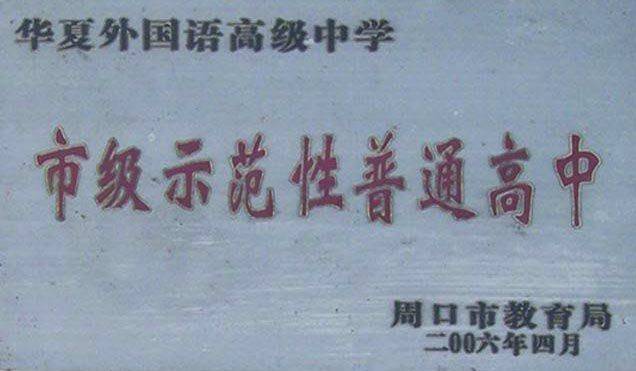 华夏外国语高级中学
市级示范性普通高中
周口市教育局
二00六年四月